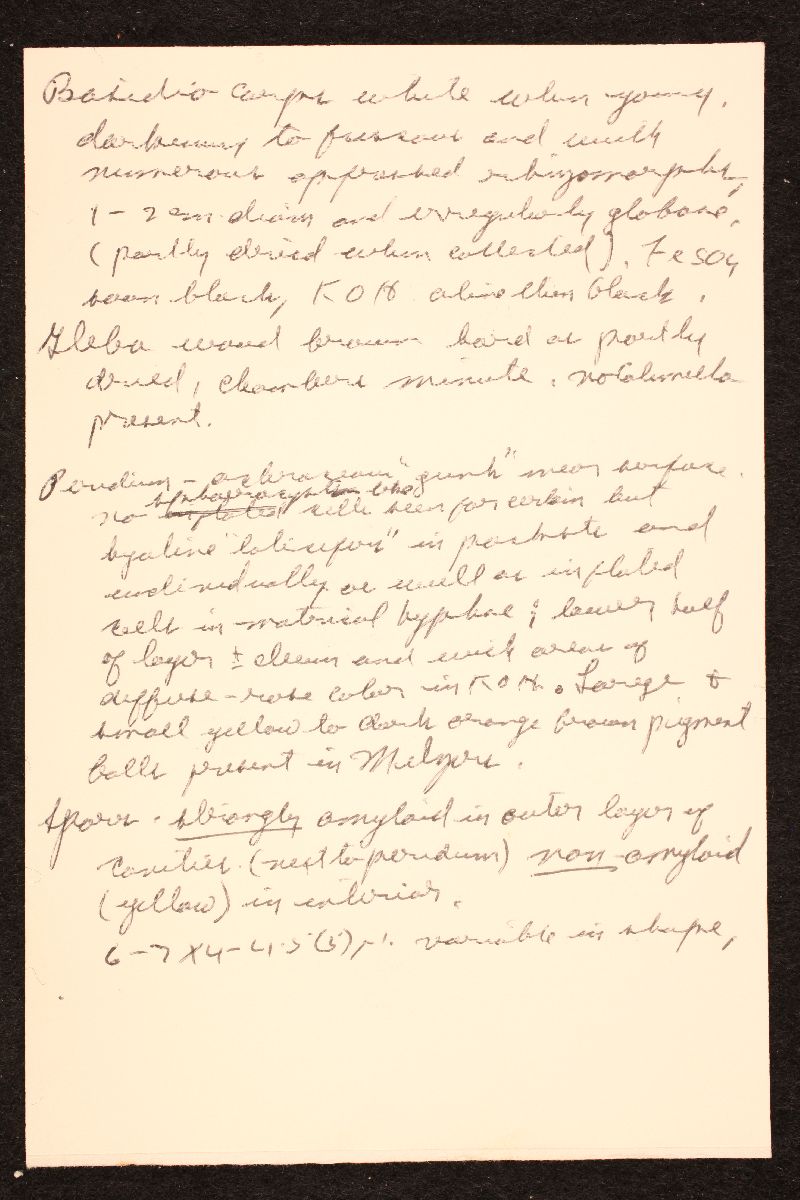 Basidio carps white when young,
darkening to fuscous and with
numerous appressed rhizomorphs,
1-2 cm diam and irregularly globose,
(partly dried when collected). FeSO4
soon black, KOH olive then black.
Gleba wood brown hard as partly
dried, chambers minute, no Columella
present.
Peridium - ochraceous "gunk" near surface.
no cells seen for certain but
hyaline in and
individually as well as inflated
cells in material hyphae; lower half
of layer ± clean and with areas of
diffuse-rose color in KOH. Large &
small yellow to dark orange brown pigment
balls present in Melzers.
Spores - strongly amyloid in outer layer of
cavities (next to peridium) non-amyloid
(yellow) in interior.
6-7 X 4-4.5 (5) µ. variable in shape,